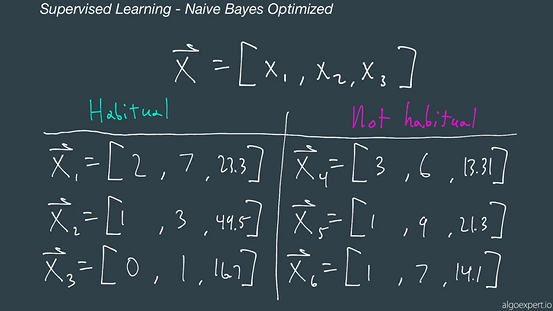 Supervised Learning - Naive Bayes Optimized
X = [x₁, x₂, x₃]
Habitual
Not habitual
X₁ = [2, 7, 23.3]
X₄ = [3, 6, 13.31]
X₂ = [1, 3, 49.5]
X₅ = [1, 9, 21.3]
X₃ = [0, 1, 16.7]
X₆ = [1, 7, 14.1]
algoexpert.io